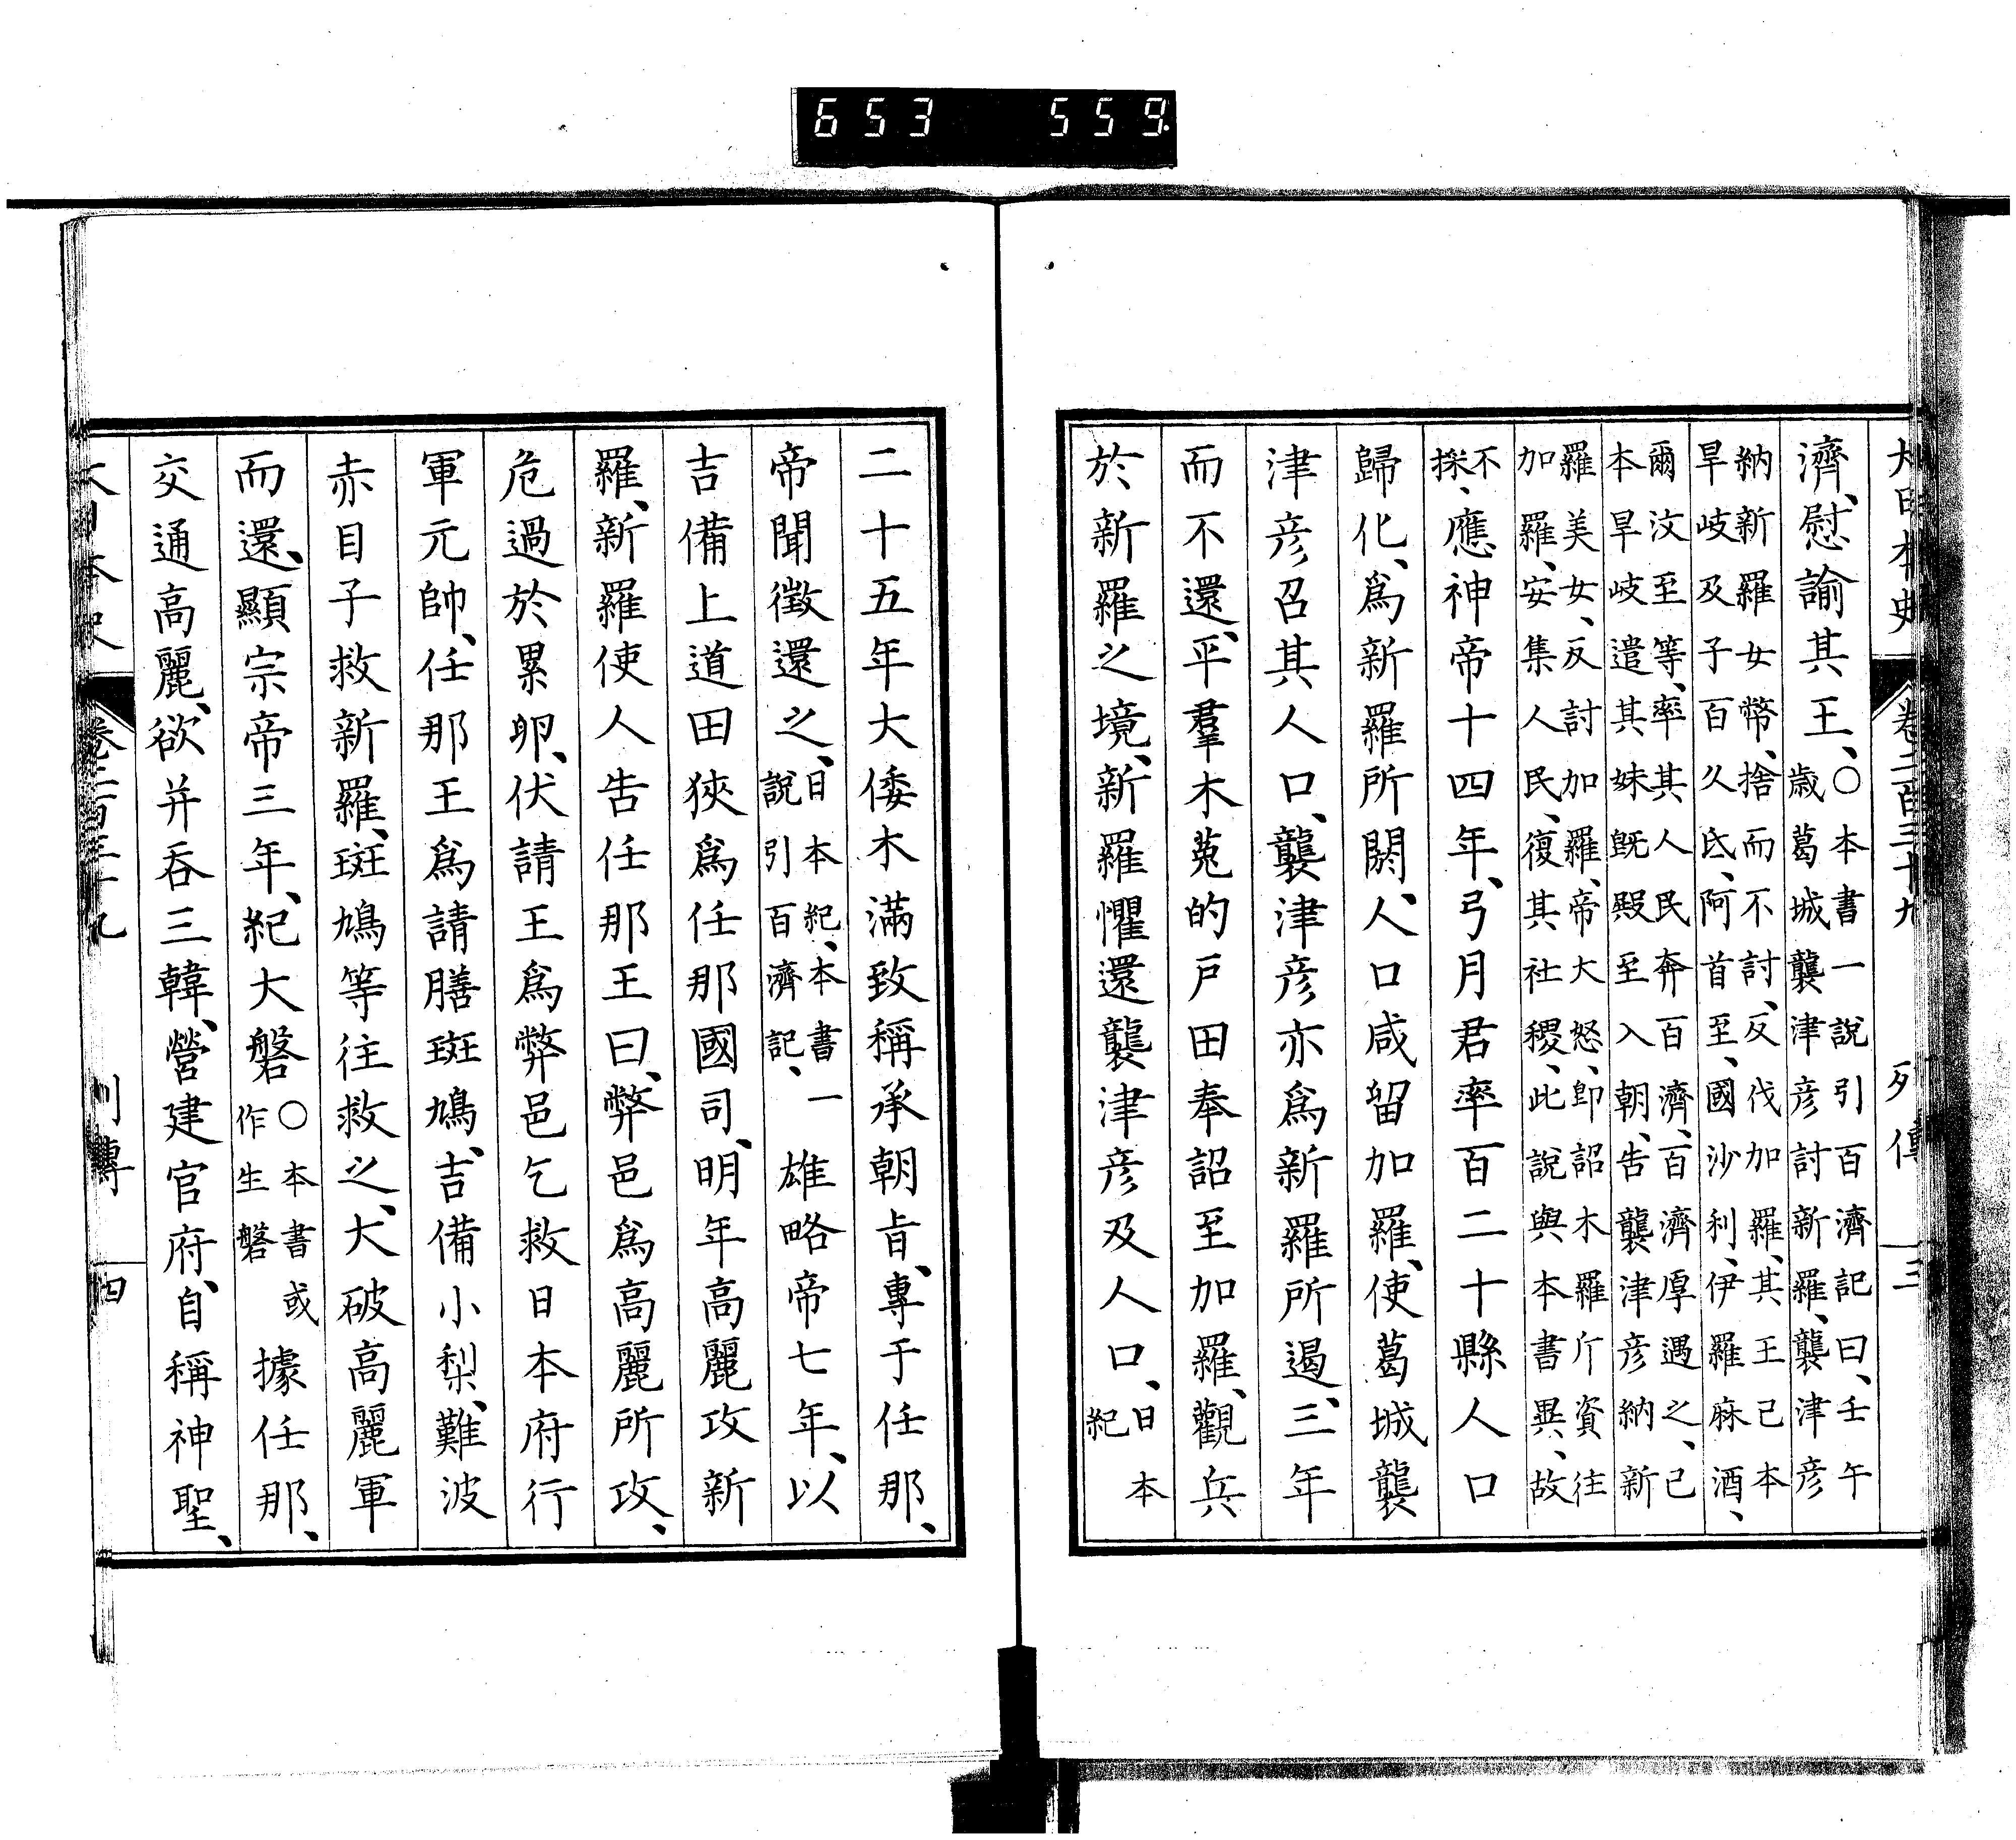 653 559
大日本史 卷二百三十九 列傳 三
濟、慰諭其王、○本書一說引百濟記曰、壬午歲葛城襲津彦討新羅、襲津彦
納新羅女幣、捨而不討、反伐加羅、其王己本旱岐及子百久氐、阿首至、國沙利、伊羅麻酒、
爾汶至等、率其人民奔百濟、百濟厚遇之、己本旱岐遣其妹既殿至入朝、告襲津彦納新
羅美女、反討加羅、帝大怒、卽詔木羅斤資往加羅、安集人民、復其社稷、此說與本書異、故
不採、應神帝十四年、弓月君率百二十縣人口
歸化、爲新羅所閼、人口咸留加羅、使葛城襲
津彦召其人口、襲津彦亦爲新羅所遏、三年
而不還、平羣木菟的戸田奉詔至加羅、觀兵
於新羅之境、新羅懼還襲津彦及人口、日本紀
二十五年大倭木滿致稱承朝旨、專于任那、
帝聞徵還之、日本紀、本書一說引百濟記、雄略帝七年、以
吉備上道田狹爲任那國司、明年高麗攻新
羅、新羅使人告任那王曰、弊邑爲高麗所攻、
危過於累卵、伏請王爲弊邑乞救日本府行
軍元帥、任那王爲請膳斑鳩、吉備小梨、難波
赤目子救新羅、斑鳩等往救之、大破高麗軍
而還、顯宗帝三年、紀大磐○本書或作生磐據任那、
交通高麗、欲幷呑三韓、營建官府、自稱神聖、
大日本史 卷二百三十九 列傳 四